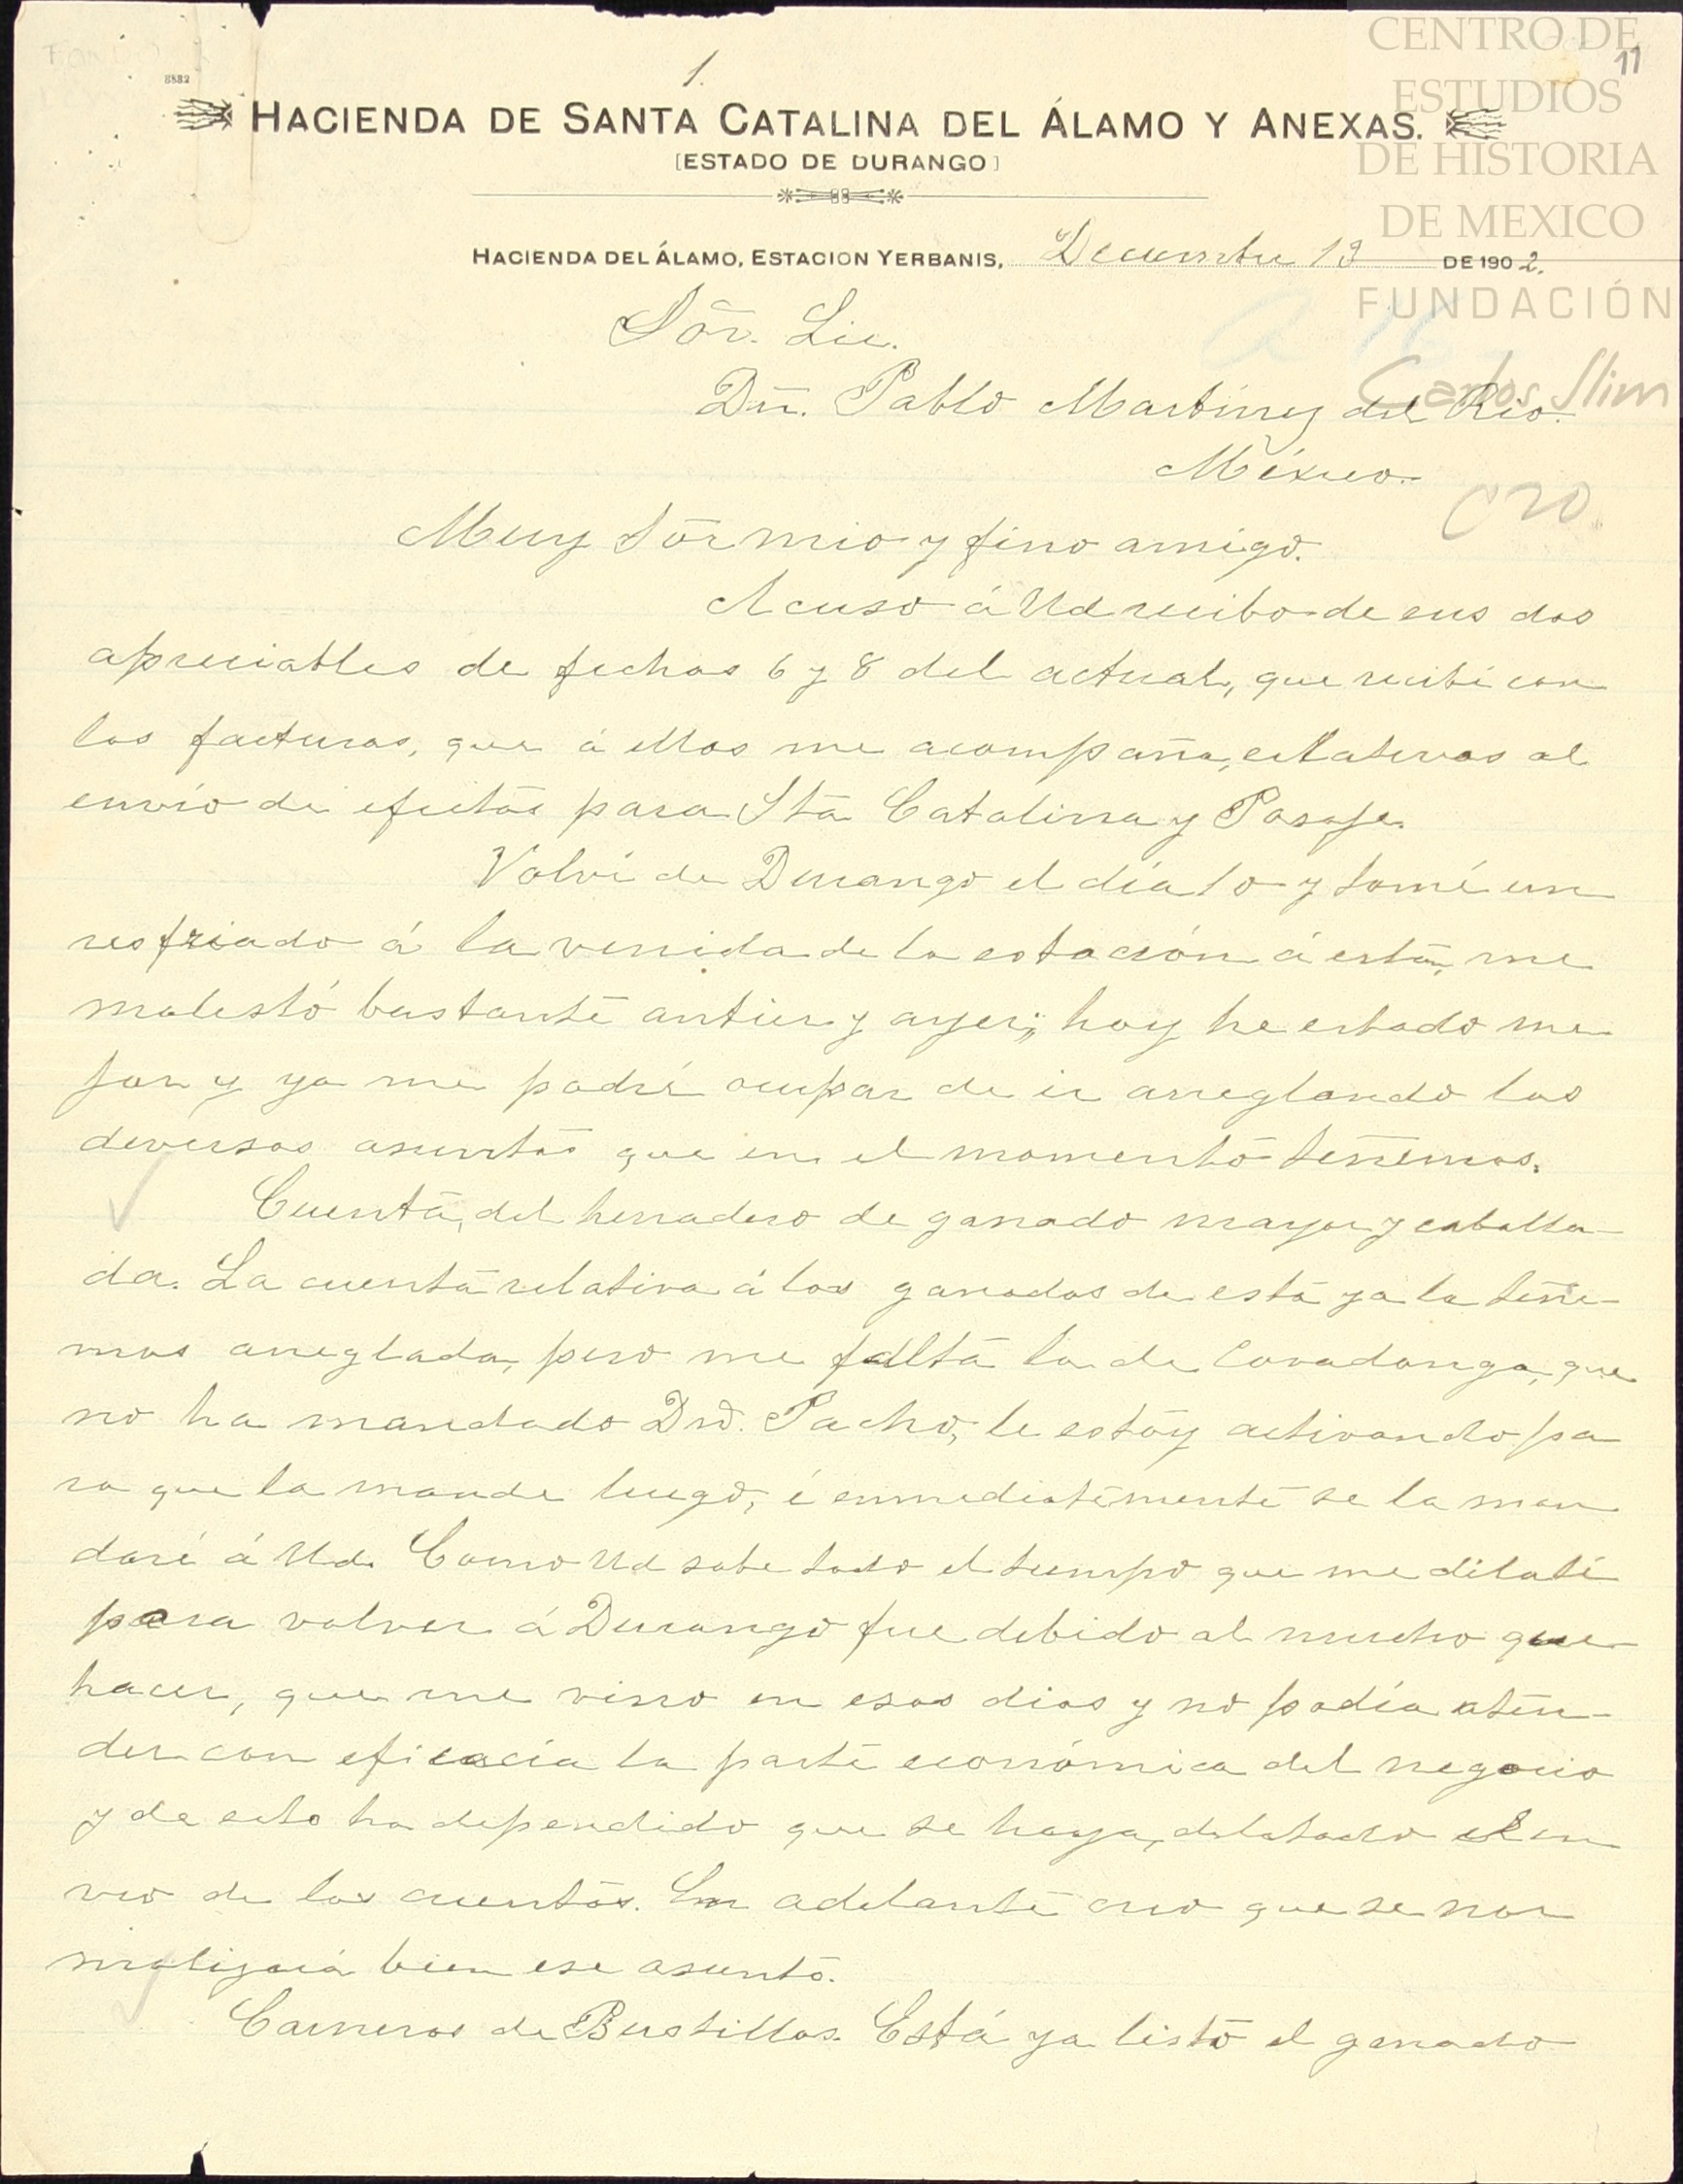 CENTRO DE
ESTUDIOS
DE HISTORIA
DE MEXICO
FUNDACIÓN
Carlos Slim
11
8882
1.
HACIENDA DE SANTA CATALINA DEL ÁLAMO Y ANEXAS.
[ESTADO DE DURANGO]
HACIENDA DEL ÁLAMO, ESTACION YERBANIS, Diciembre 13 DE 1902.
Sór. Lic.
Dn. Pablo Martinez del Rio.
México.
C 20
Muy Sór mio y fino amigo.
Acuso á Ud recibo de sus dos
apreciables de fechas 6 y 8 del actual, que recibí con
las facturas, que á ellas me acompaña, relativas al
envío de efectos para Sta Catalina y Pasaje.
Volví de Durango el día 10 y tomé un
resfriado á la venida de la estación á esta, me
molestó bastante antier y ayer; hoy he estado me
jor y ya me podré ocupar de ir arreglando los
diversos asuntos que en el momento tenemos.
Cuenta, del herradero de ganado mayor y caballa-
da. La cuenta relativa á los ganados de esta ya la tene-
mos arreglada, pero me falta la de Covadonga, que
no ha mandado Dn. Pacho, le estoy activando pa
ra que la mande luego, é inmediatamente se la man
daré á Ud. Como Ud sabe todo el tiempo que me dilaté
para volver á Durango fue debido al mucho que
hacer, que me vino en esos dias y no podía aten-
der con eficacia la parte económica del negocio
y de esto ha dependido que se haya, dilatado el en
vio de las cuentas. En adelante creo que se nor
malizará bien ese asunto.
Carneros de Bustillos. Está ya listo el ganado